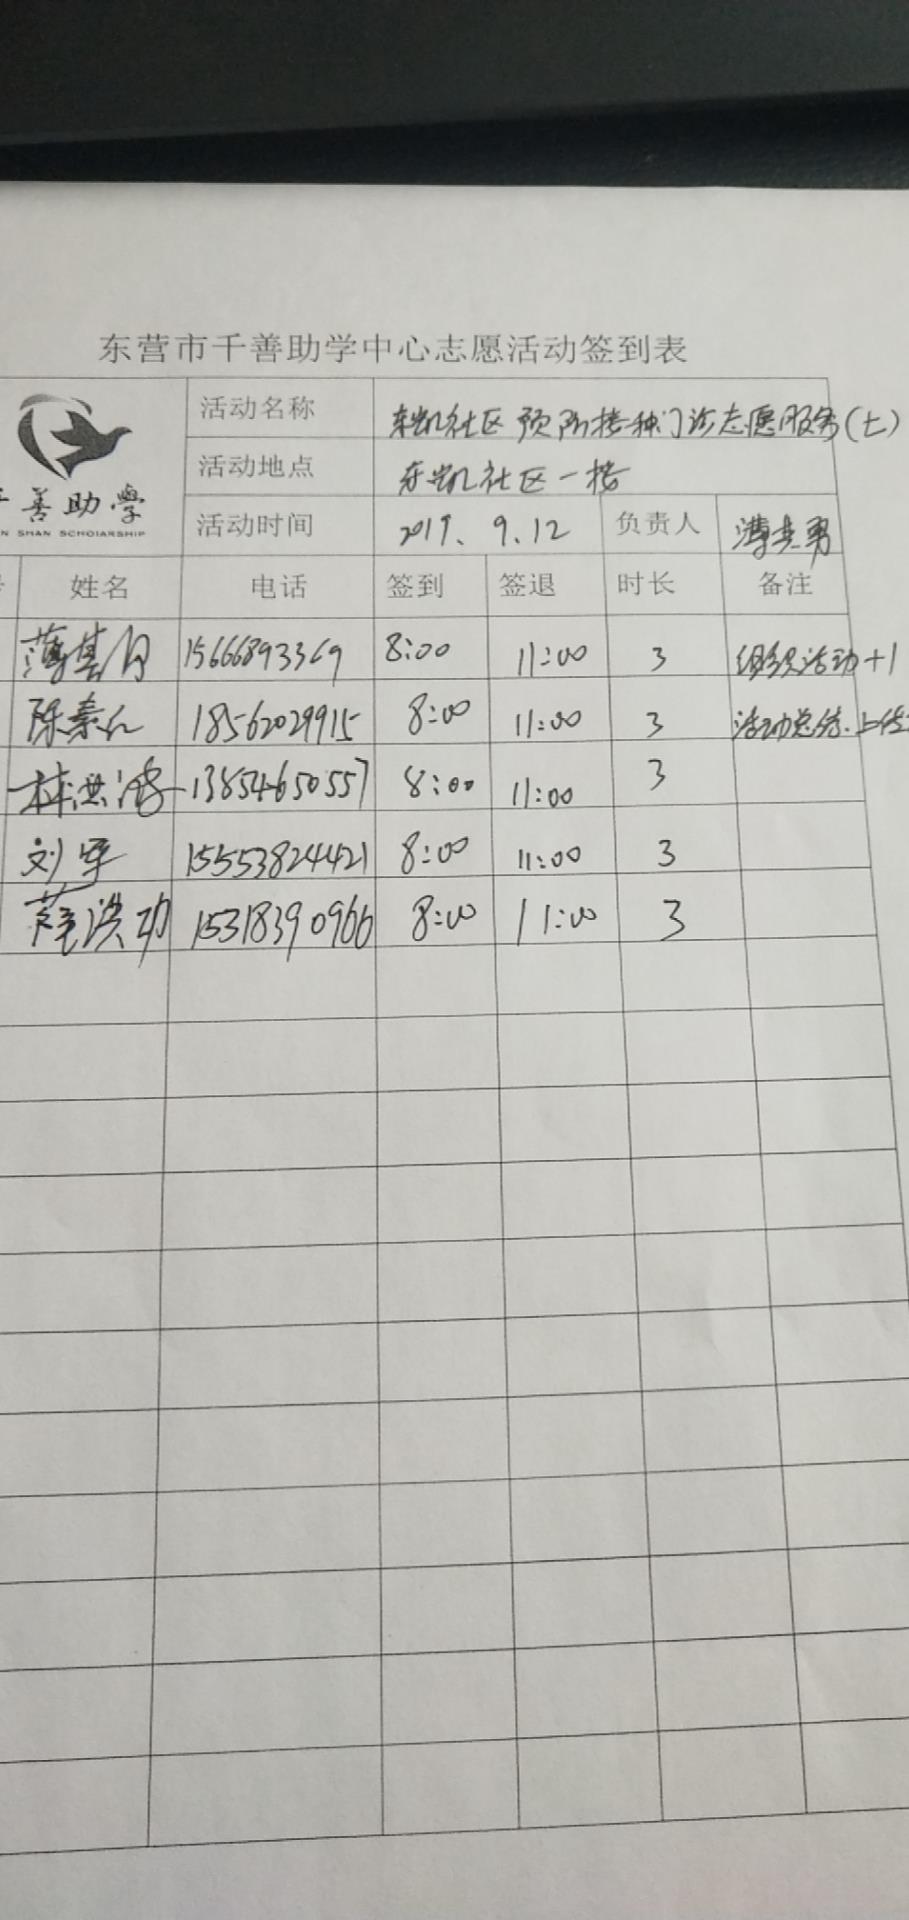 东营市千善助学中心志愿活动签到表
活动名称 东凯社区预防接种门诊志愿服务(七)
善助學
活动地点 东凯社区一楼
N SHAN SCHOIARSHIP
活动时间 2019.9.12 负责人
姓名 电话 签到 签退 时长 备注
15666893369 8:00 11:00 3 组织活动+1
18562029915 8:00 11:00 3 活动总结.上传
林洪 13854650557 8:00 11:00 3
刘军 15553824421 8:00 11:00 3
薛洪功 15318390966 8:00 11:00 3